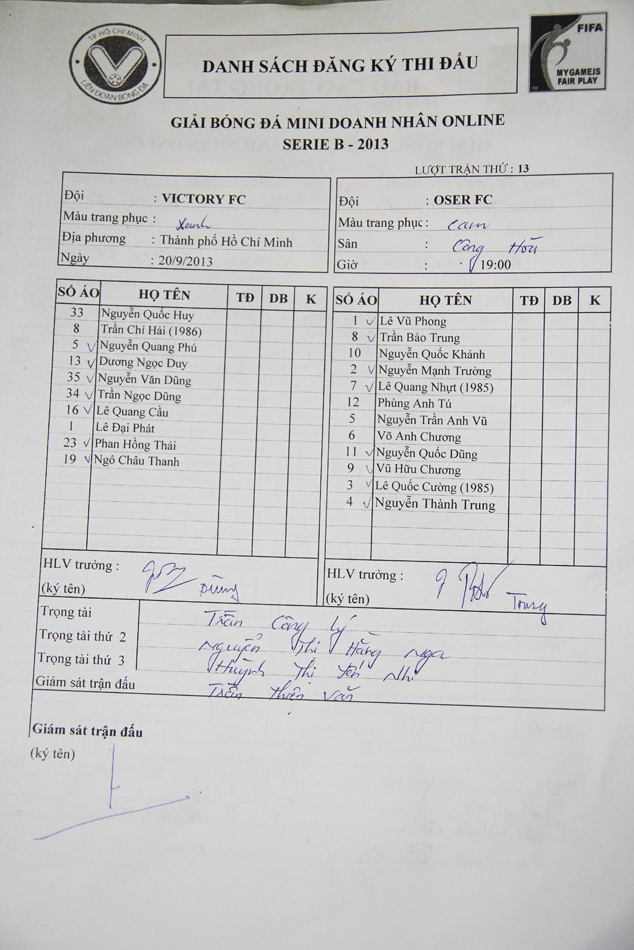 TP HỒ CHÍ MINH
LIÊN ĐOÀN BÓNG ĐÁ
DANH SÁCH ĐĂNG KÝ THI ĐẤU
FIFA
MY GAME IS
FAIR PLAY
GIẢI BÓNG ĐÁ MINI DOANH NHÂN ONLINE
SERIE B - 2013
LƯỢT TRẬN THỨ : 13
Đội : VICTORY FC
Màu trang phục : Xanh
Địa phương : Thành phố Hồ Chí Minh
Ngày : 20/9/2013
Đội : OSER FC
Màu trang phục : cam
Sân : Cộng Hòa
Giờ : 19:00
SỐ ÁO HỌ TÊN TĐ DB K
33 Nguyễn Quốc Huy
8 Trần Chí Hải (1986)
5 √ Nguyễn Quang Phú
13 √ Dương Ngọc Duy
35 √ Nguyễn Văn Dũng
34 √ Trần Ngọc Dũng
16 √ Lê Quang Cầu
1 Lê Đại Phát
23 √ Phan Hồng Thái
19 √ Ngô Châu Thanh
SỐ ÁO HỌ TÊN TĐ DB K
1 √ Lê Vũ Phong
8 √ Trần Bảo Trung
10 Nguyễn Quốc Khánh
2 √ Nguyễn Mạnh Trường
7 √ Lê Quang Nhựt (1985)
12 Phùng Anh Tú
5 Nguyễn Trần Anh Vũ
6 Võ Anh Chương
11 √ Nguyễn Quốc Dũng
9 √ Vũ Hữu Chương
3 √ Lê Quốc Cường (1985)
4 √ Nguyễn Thành Trung
HLV trưởng :
(ký tên) Dũng
HLV trưởng :
(ký tên) Trung
Trọng tài Trần Công Lý
Trọng tài thứ 2 Nguyễn Thị Hằng Nga
Trọng tài thứ 3 Huỳnh Thị Yến Nhi
Giám sát trận đấu Trần Thiện Văn
Giám sát trận đấu
(ký tên)